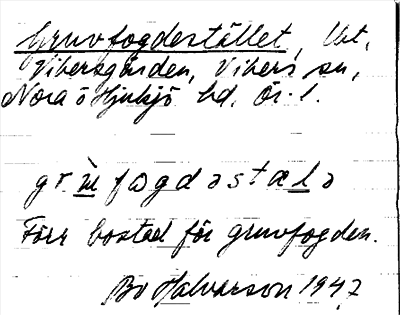 Gruvfogdestället, lht,
Vibersgården, Vikers sn,
Nora ö Hjulsjö hd, Ör. l.
grɯ̀fogdəstæḻə
Förr bostad för gruvfogden.
Bo Halvarson 1947